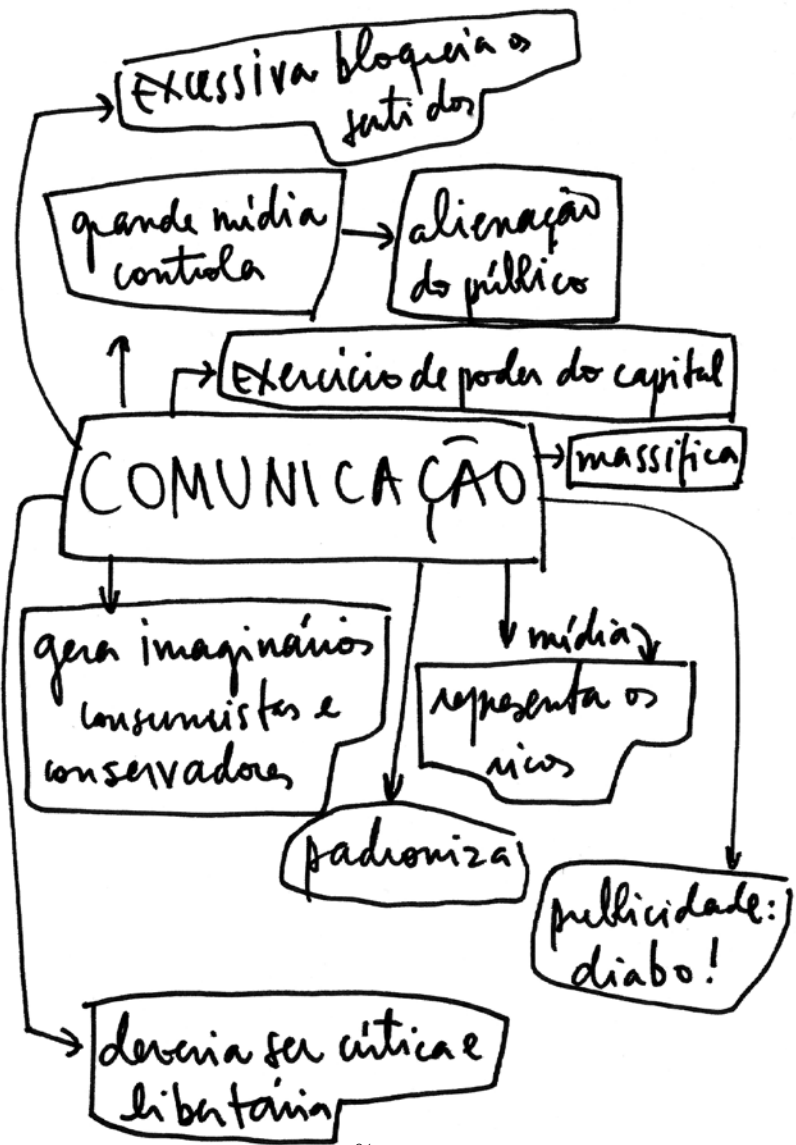 Excessiva bloqueia os
sentidos
grande mídia
controla
alienação
do público
Exercício de poder do capital
COMUNICAÇÃO
massifica
gera imaginários
consumistas e
conservadores
mídia
representa os
ricos
padroniza
publicidade:
diabo!
deveria ser crítica e
libertária